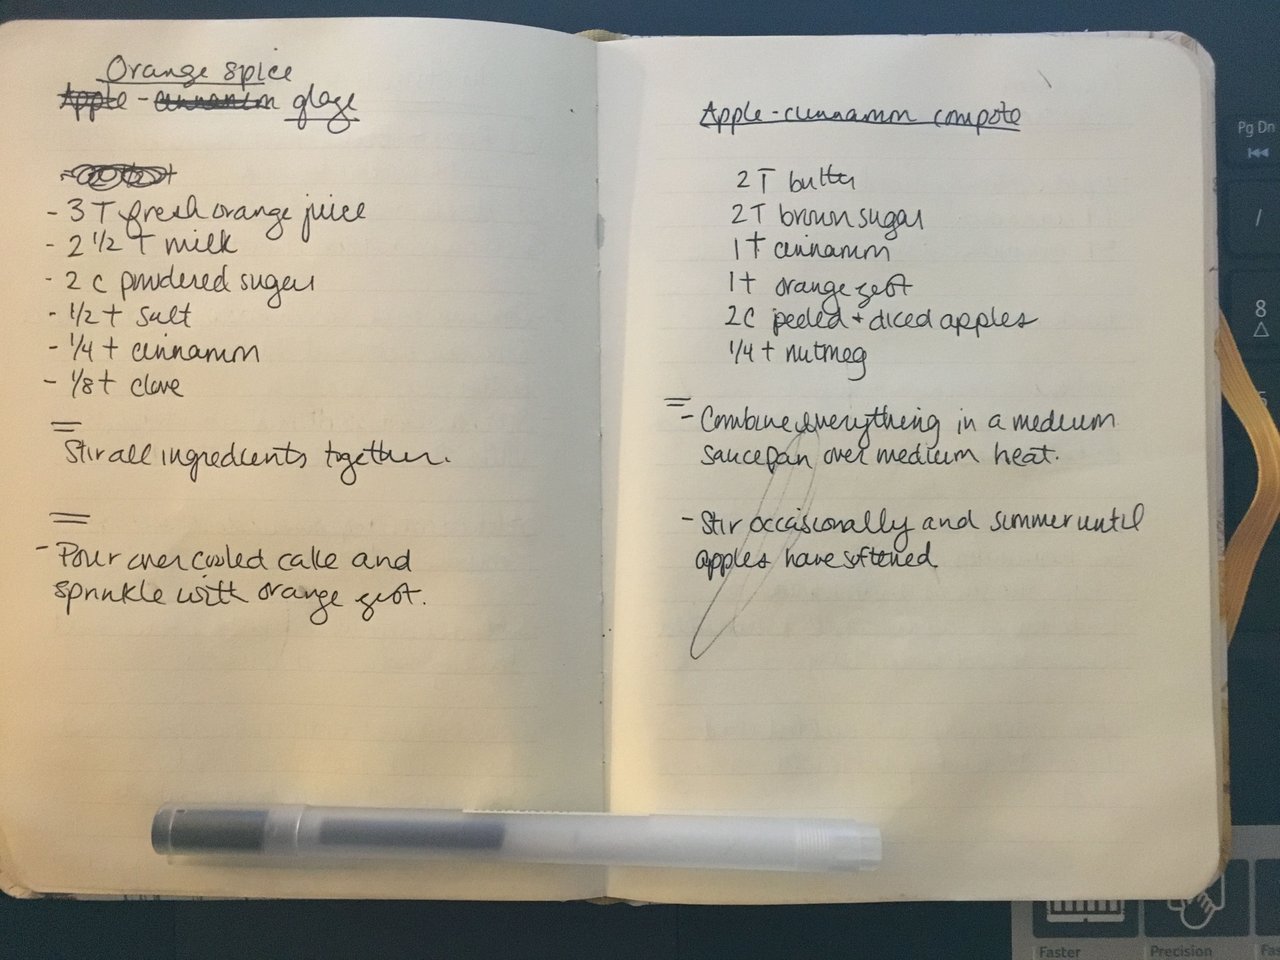 Orange spice
Apple - cinnamon glaze
- 3 T fresh orange juice
- 2 1/2 T milk
- 2 c powdered sugar
- 1/2 t salt
- 1/4 t cinnamon
- 1/8 t clove
=
Stir all ingredients together.
=
- Pour over cooled cake and
sprinkle with orange zest.
Apple - cinnamon compote
2 T butter
2 T brown sugar
1 t cinnamon
1 t orange zest
2 C peeled + diced apples
1/4 t nutmeg
=
- Combine everything in a medium
saucepan over medium heat.
- Stir occasionally and simmer until
apples have softened
Pg Dn
/
8
Faster
Precision